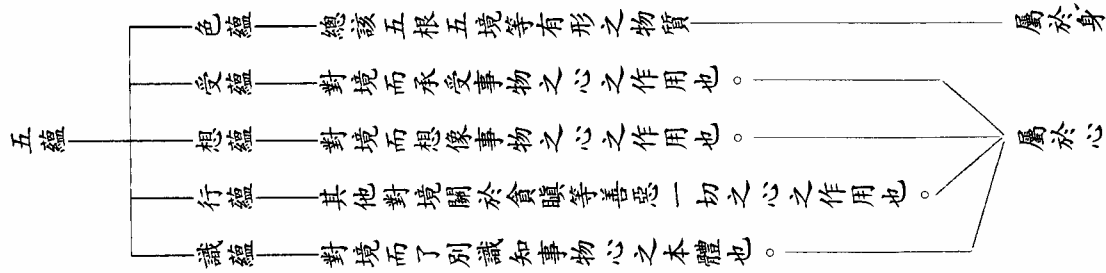 五蘊
色蘊 總該五根五境等有形之物質 屬於身
受蘊 對境而承受事物之心之作用也。
想蘊 對境而想像事物之心之作用也。 屬於心
行蘊 其他對境關於貪瞋等善惡一切之心之作用也。
識蘊 對境而了別識知事物心之本體也。